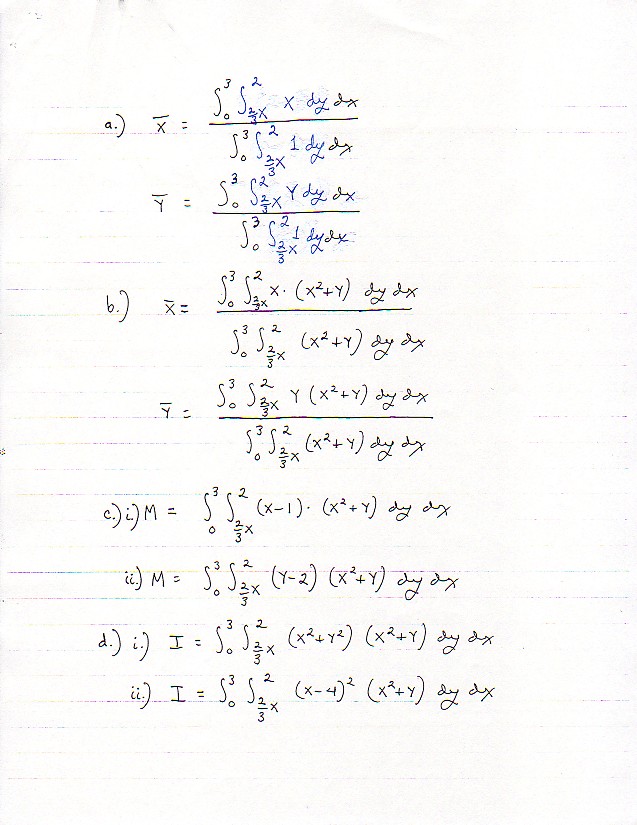 a.) x̄ = ∫₀³ ∫_{2/3 x}^2 x dy dx / ∫₀³ ∫_{2/3 x}^2 1 dy dx
ȳ = ∫₀³ ∫_{2/3 x}^2 y dy dx / ∫₀³ ∫_{2/3 x}^2 1 dy dx
b.) x̄ = ∫₀³ ∫_{2/3 x}^2 x · (x²+y) dy dx / ∫₀³ ∫_{2/3 x}^2 (x²+y) dy dx
ȳ = ∫₀³ ∫_{2/3 x}^2 y (x²+y) dy dx / ∫₀³ ∫_{2/3 x}^2 (x²+y) dy dx
c.) i.) M = ∫₀³ ∫_{2/3 x}^2 (x-1) · (x²+y) dy dx
ii.) M = ∫₀³ ∫_{2/3 x}^2 (y-2) (x²+y) dy dx
d.) i.) I = ∫₀³ ∫_{2/3 x}^2 (x²+y²) (x²+y) dy dx
ii.) I = ∫₀³ ∫_{2/3 x}^2 (x-4)² (x²+y) dy dx